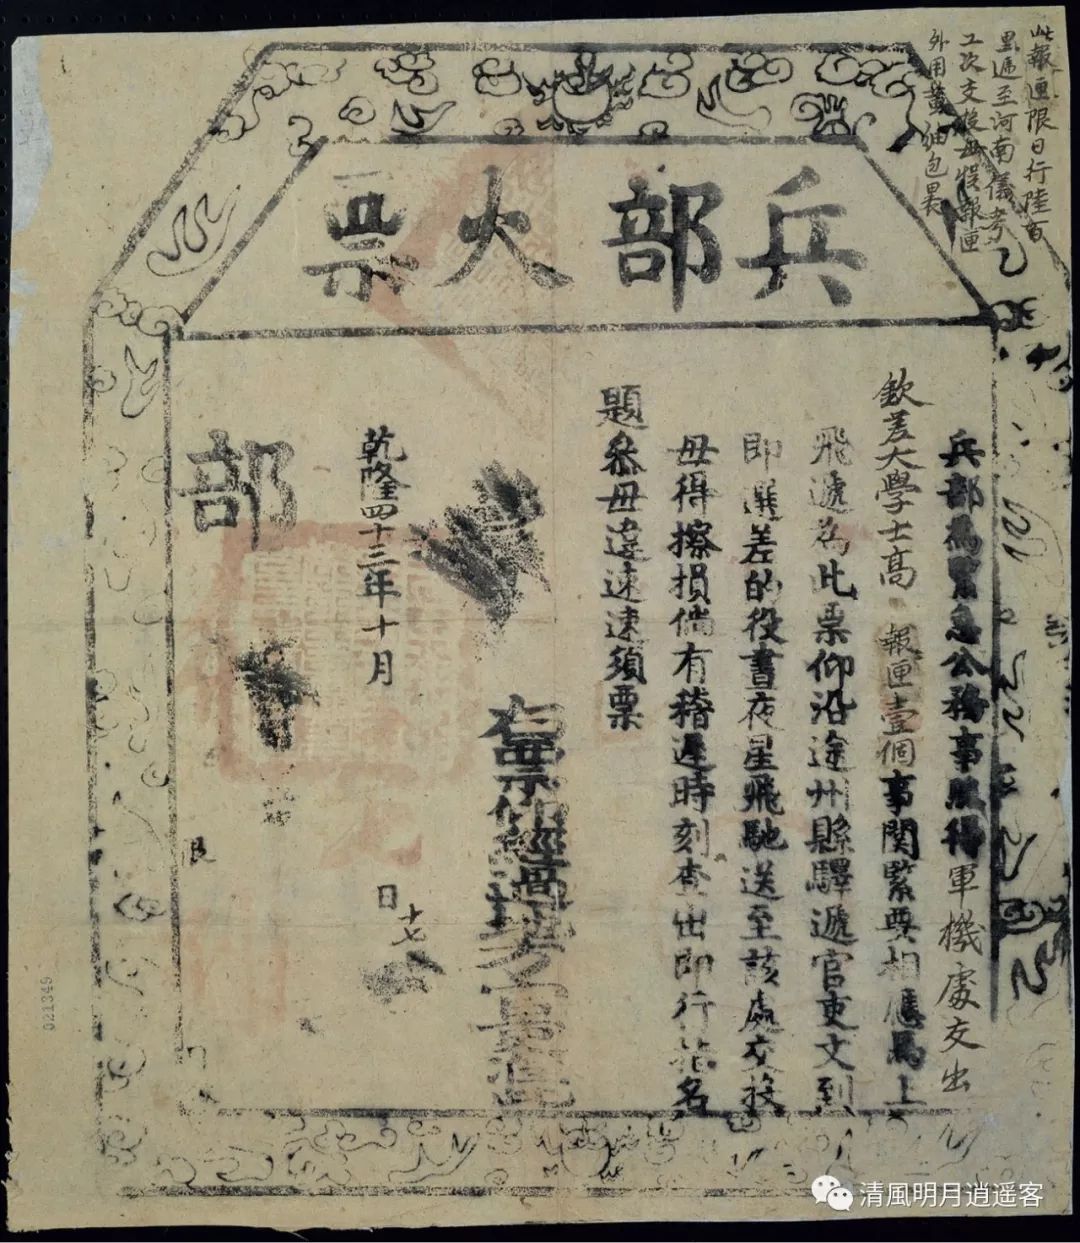 兵部火票
此報匣限日行陸百
里遞至河南儀考
工次交投毋悞報匣
外用黃紬包裹
兵部為緊急公務事照得軍機處交出
欽差大學士高 報匣壹個事關緊要相應馬上
飛遞為此票仰沿途州縣驛遞官吏文到
即選差的役晝夜星飛馳送至該處交投
毋得擦損倘有稽遲時刻查出即行指名
題參毋違速速須票
右票仰經過
乾隆四十三年十月
十七
日
部
021349
清風明月逍遥客